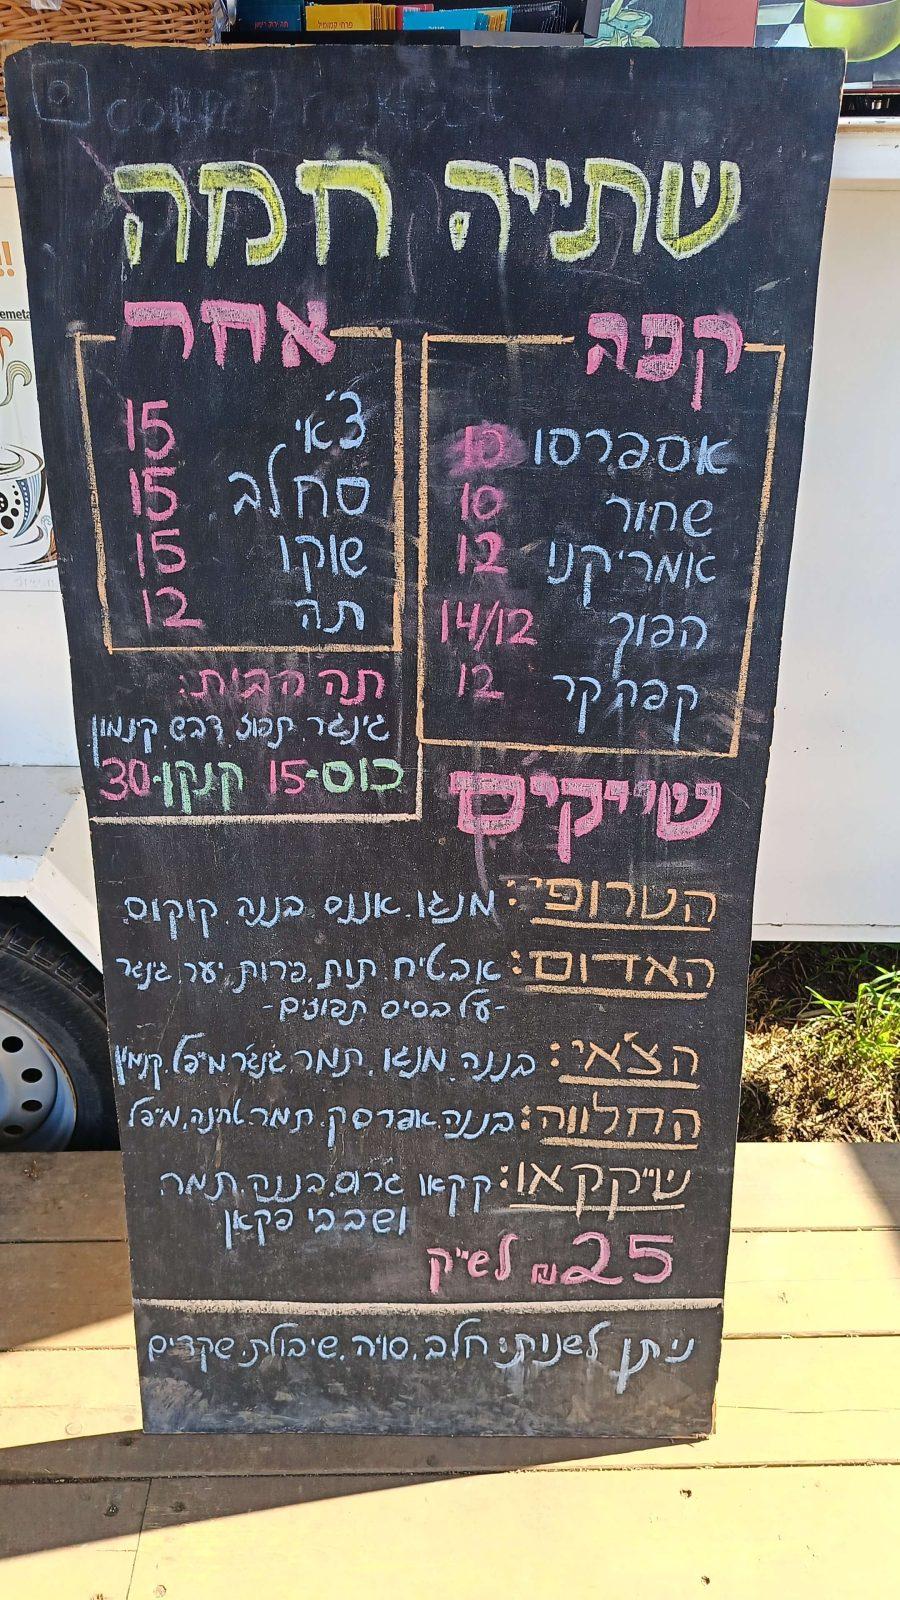 תה ירוק ויסמין
פרחי קמומיל
!!
emeta
שתייה חמה
קפה
אספרסו 10
שחור 10
אמריקנו 12
הפוך 14/12
קפה קר 12
אחר
צ'אי 15
סחלב 15
שוקו 15
תה 12
תה הבית:
ג'ינג'ר. תפוז. דבש. קנמון
כוס-15 קנקן-30
שייקים
הטרופי: מנגו. אננס. בננה. קוקוס
האדום: אבטיח. תות. פירות יער. גינגר
-על בסיס תפוזים-
הצ'אי: בננה. מנגו. תמר. ג'ינג'ר. מייפל. קנמון
החלווה: בננה. אפרסק. תמר. טחינה. מייפל
שייקקאו: קקאו גרוס. בננה. תמרה
ושבבי פקאן
25 ₪ לשייק
ניתן לשנות: חלב. סויה. שיבולת. שקדים